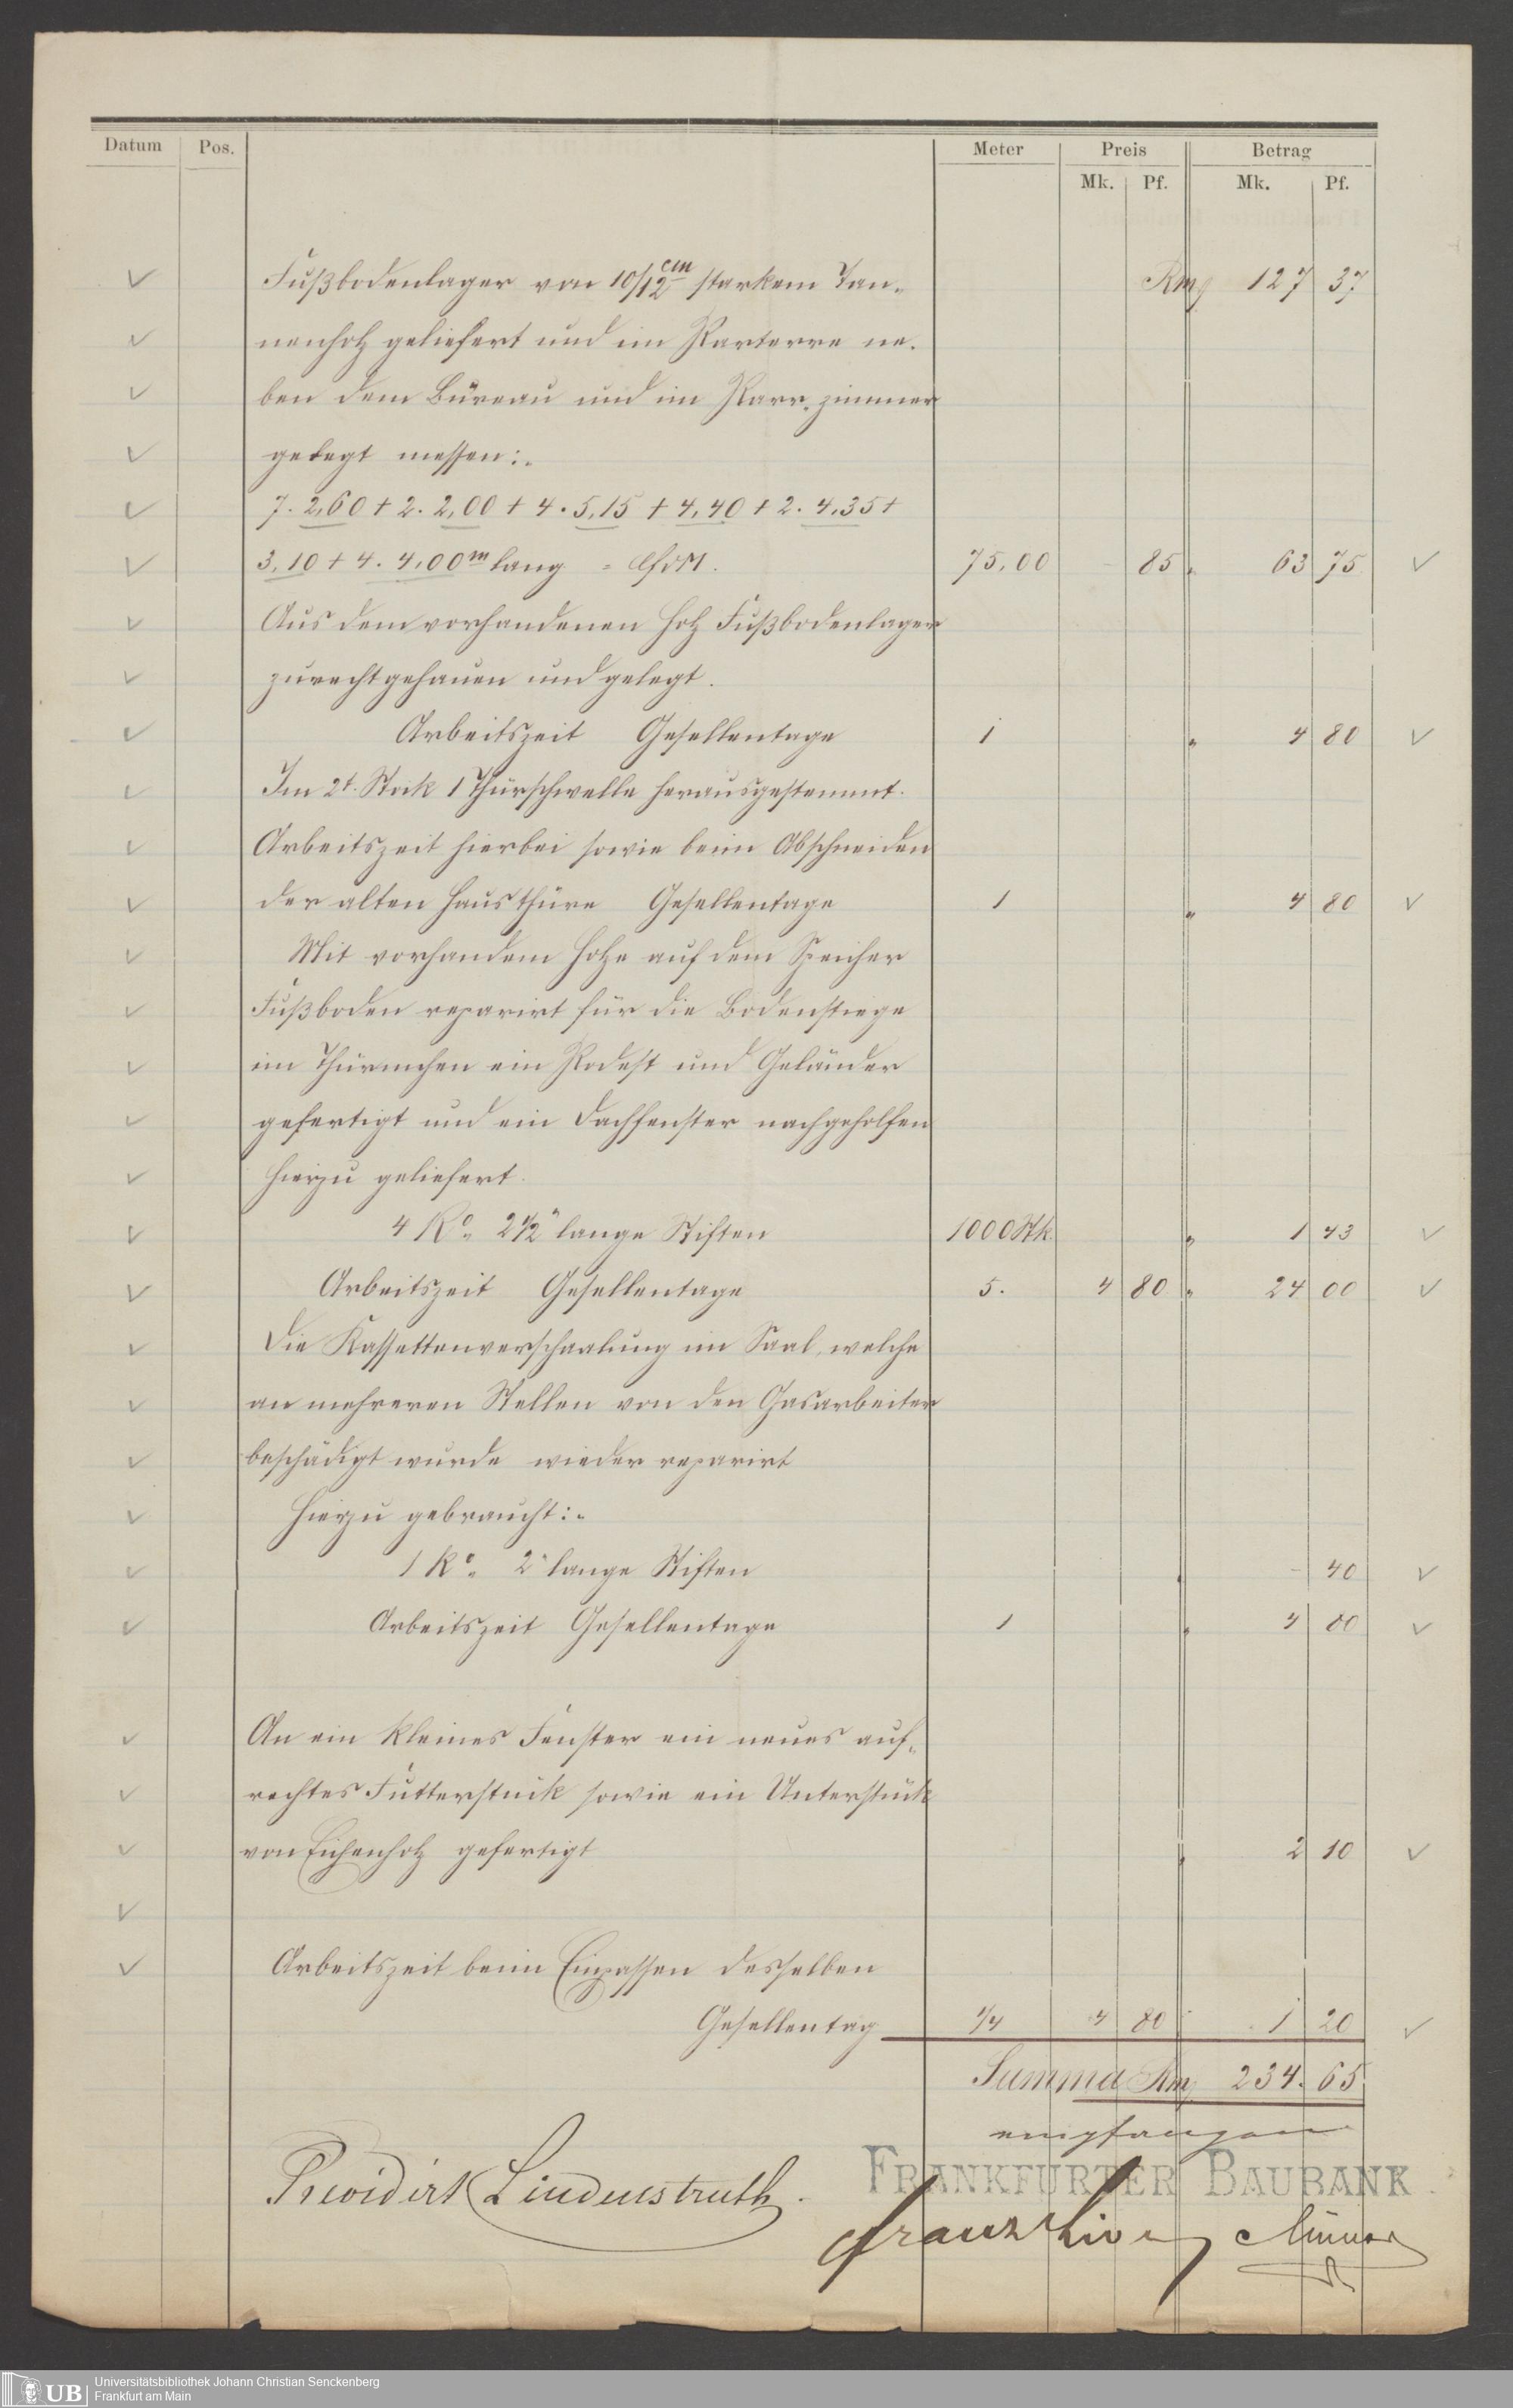 Datum Pos. Meter Preis Betrag
Mk. Pf. Mk. Pf.
Fußbodenlager von 10/12 cm starkem Tan- Rm 127 37
nenholz geliefert und im Parterre ne-
ben dem Büreau und im zimmer
gelegt messen:
7. 2,60 + 2. 2,00 + 4. 5,15 + 4,40 + 2. 4,35 +
3,10 + 4. 4,00 m lang = lfdM. 75,00 85 " 63 75
Aus dem vorhandenen Holz Fußbodenlager
zurechtgehauen und gelegt.
Arbeitszeit Gesellentage 1 " 4 80
Im 2t. Stock 1 Thürschwelle herausgestemmt.
Arbeitszeit hierbei sowie beim Abschneiden
der alten Hausthüre Gesellentage 1 " 4 80
Mit vorhandem Holze auf dem Speicher
Fußboden reparirt für die Bodenstiege
im Thürmchen ein Podest und Geländer
gefertigt und ein Dachfenster nachgeholfen
hierzu geliefert.
4 Ko. 2 1/2" lange Stiften 1000 Stk. " 1 43
Arbeitszeit Gesellentage 5. 4 80 " 24 00
Die Kassettenverschaalung im Saal, welche
an mehreren Stellen von den Gasarbeiter
beschädigt wurde wieder reparirt
Hierzu gebraucht:
1 Ko. 2" lange Stiften " - 40
Arbeitszeit Gesellentage 1 " 4 80
An ein kleines Fenster ein neues auf-
rechtes Futterstück sowie ein Unterstück
von Eichenholz gefertigt " 2 10
Arbeitszeit beim Einpassen desselben
Gesellentag 1/4 4 80 " 1 20
Summa Rm 234. 65
empfangen
FRANKFURTER BAUBANK
Revidirt Lindenstruth.
UB Universitätsbibliothek Johann Christian Senckenberg
Frankfurt am Main